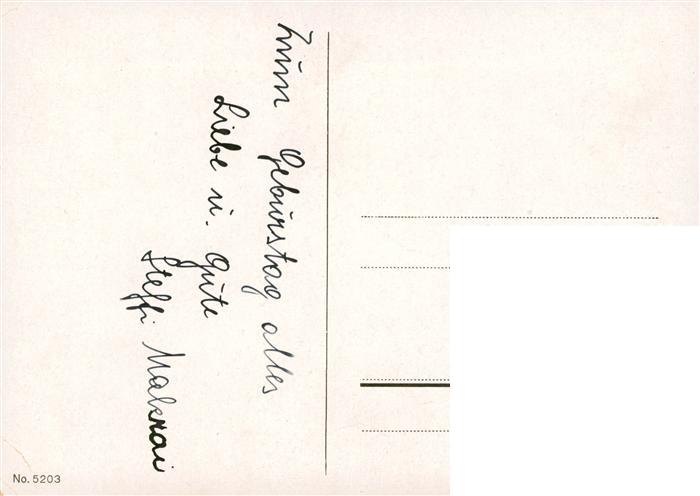 Zum Geburstag alles
Liebe u. Gute
Steffi
No. 5203